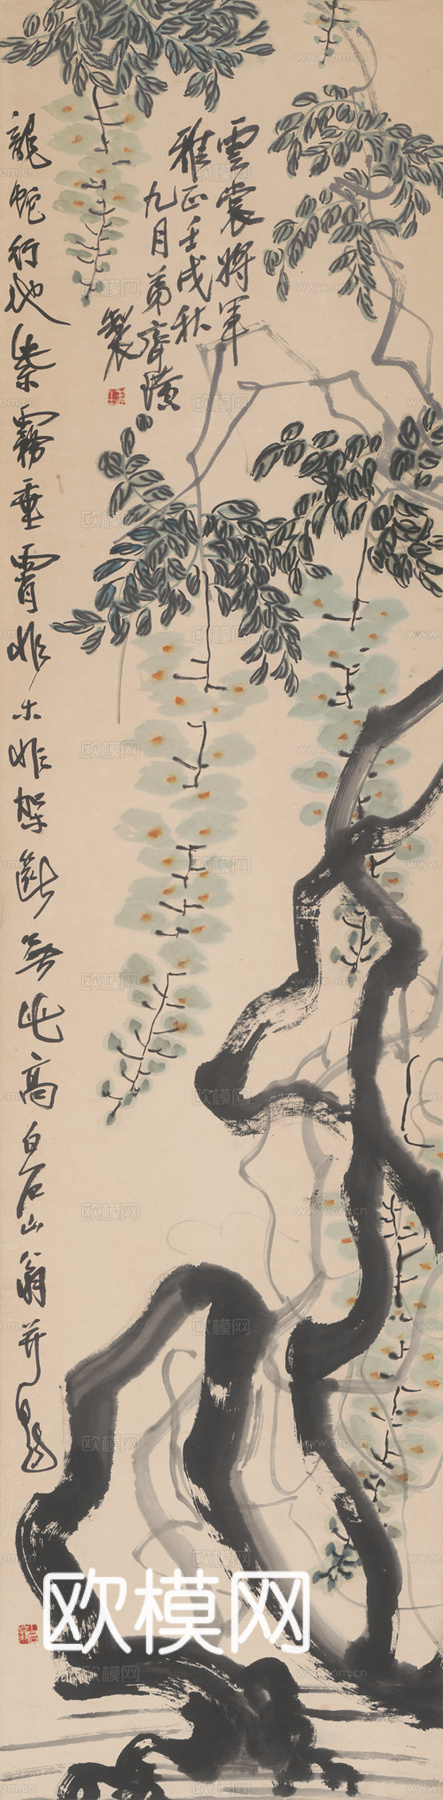 雲裳將軍
雅正壬戌秋
九月弟齊璜
製
龍蛇行地紫霧垂霄非木非架斷無此高白石山翁并題
欧模网